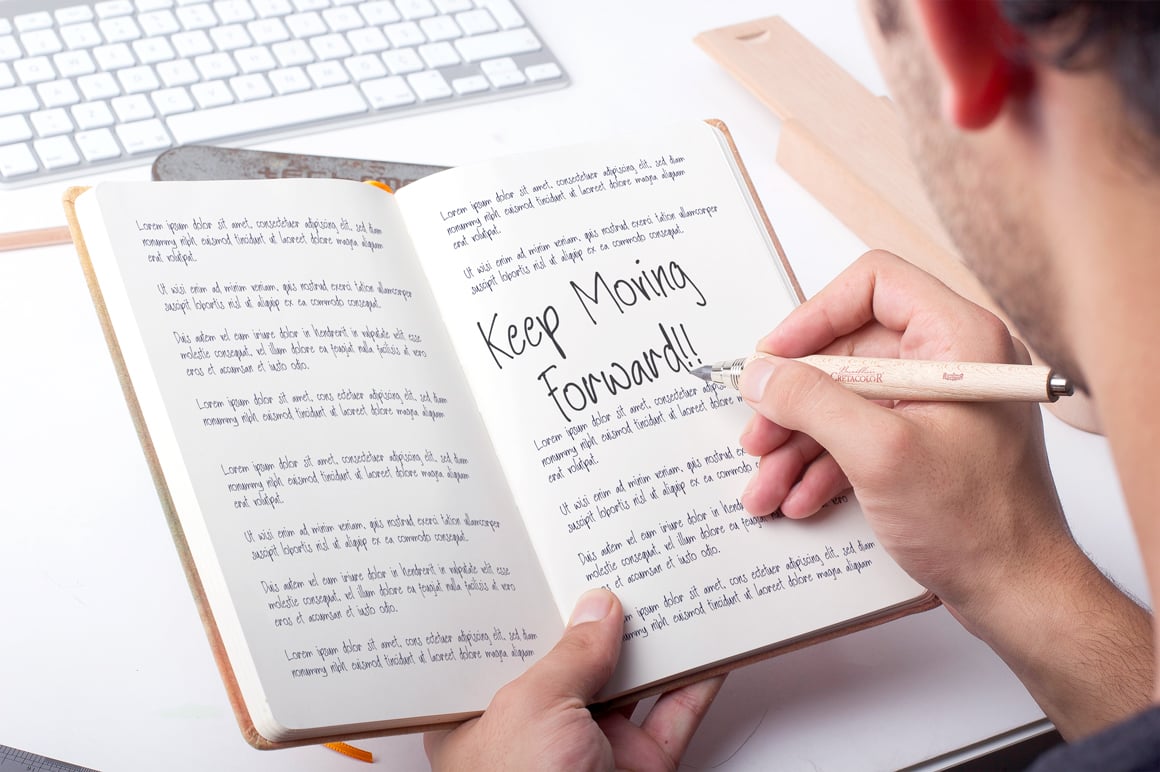 tech
Lorem ipsum dolor sit amet, consectetuer adipiscing elit, sed diam
nonummy nibh euismod tincidunt ut laoreet dolore magna aliquam
erat volutpat.
Ut wisi enim ad minim veniam, quis nostrud exerci tation ullamcorper
suscipit lobortis nisl ut aliquip ex ea commodo consequat.
Duis autem vel eum iriure dolor in hendrerit in vulputate velit esse
molestie consequat, vel dolore eu feugiat nulla facilisis at vero
eros et accumsan et iusto odio.
Lorem ipsum dolor sit amet, cons ectetuer adipiscing elit, sed diam
nonummy nibh euismod tincidunt ut laoreet dolore magna aliquam
Lorem ipsum dolor sit amet, consectetuer adipiscing elit, sed diam
nonummy nibh euismod tincidunt ut laoreet dolore magna aliquam
erat volutpat.
Ut wisi enim ad minim veniam, quis nostrud exerci tation ullamcorper
suscipit lobortis nisl ut aliquip ex ea commodo consequat.
Duis autem vel eum iriure dolor in hendrerit in vulputate velit esse
molestie consequat, vel dolore eu feugiat nulla facilisis at vero
eros et accumsan et iusto odio.
Lorem ipsum dolor sit amet, cons ectetuer adipiscing elit, sed diam
nonummy nibh euismod tincidunt ut laoreet dolore magna aliquam
Lorem ipsum dolor sit amet, consectetuer adipiscing elit, sed diam
nonummy nibh euismod tincidunt ut laoreet dolore magna aliquam
erat volutpat.
Ut wisi enim ad minim veniam, quis nostrud exerci tation ullamcorper
suscipit lobortis nisl ut aliquip ex ea commodo consequat.
Keep Moving
Forward!!
Lorem ipsum dolor sit amet, consectetuer
nonummy nibh euismod tincidunt ut laoreet dolore
erat volutpat.
Ut wisi enim ad minim veniam, quis nostrud
suscipit lobortis nisl ut aliquip ex ea commodo
Duis autem vel eum iriure dolor in
molestie consequat, vel dolore eu feugiat
et accumsan et iusto odio.
ipsum dolor sit amet, cons ectetuer adipiscing elit, sed diam
nibh euismod tincidunt ut laoreet dolore magna aliquam
CRETACOLOR